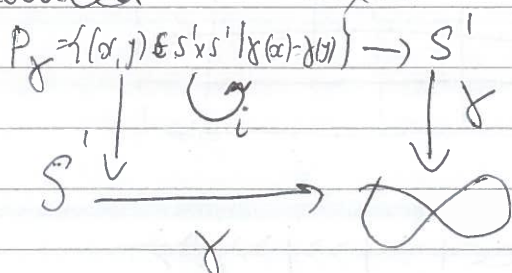 P_γ = {(x,y) ∈ S¹×S¹ | γ(x)=γ(y)} → S¹
i
γ
S¹
γ